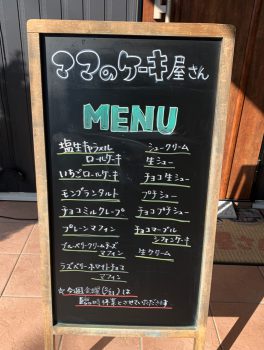 ママのケーキ屋さん
MENU
塩生キャラメル
ロールケーキ
いちごロールケーキ
モンブランタルト
チョコミルクレープ
プレーンマフィン
ブルーベリークリームチーズ
マフィン
ラズベリーホワイトチョコ
マフィン
シュークリーム
生シュー
チョコ生シュー
プチシュー
チョコプチシュー
チョコマーブル
シフォンケーキ
生クリーム
☆今週金曜()は
臨時休業とさせていただきます